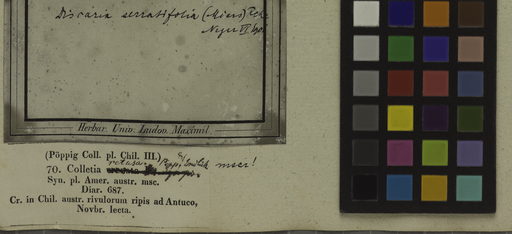 Discaria serratifolia (Miers)
Herbar. Univ. Ludov. Maximil.
(Pöppig Coll. pl. Chil. III.)
70. Colletia mscr!
Syn. pl. Amer. austr. msc.
Diar. 687.
Cr. in Chil. austr. rivulorum ripis ad Antuco,
Novbr. lecta.